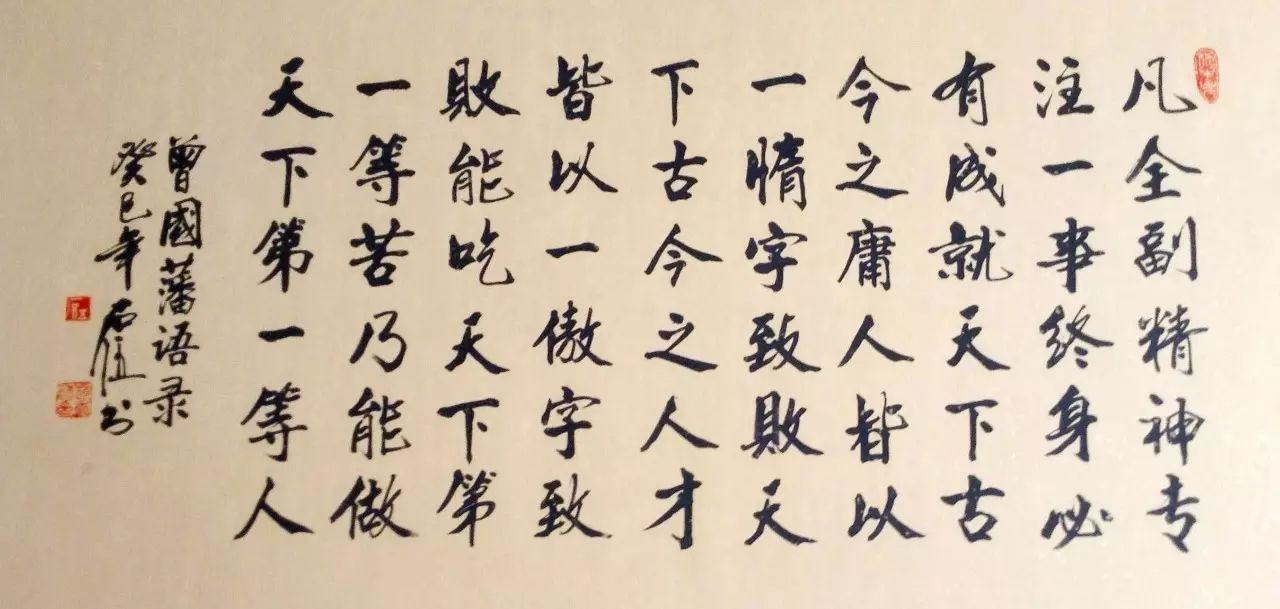 凡全副精神专
注一事终身必
有成就天下古
今之庸人皆以
一惰字致败天
下古今之人才
皆以一傲字致
败能吃天下第
一等苦乃能做
天下第一等人
曾國藩语录
癸巳年
书